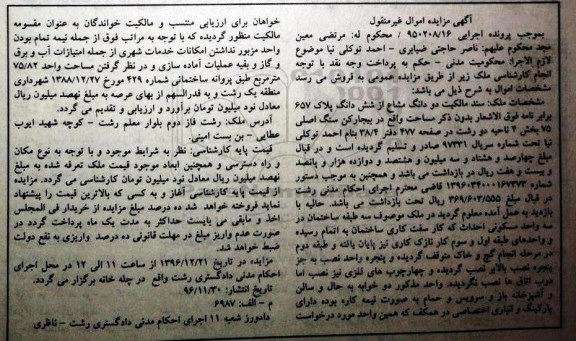 آگهی مزایده اموال غیرمنقول
بموجب پرونده اجرایی ۹۵۰۲۰۸/۱۶ / محکوم له: مرتضی معین
مجد محکوم علیهم: ناصر حاجتی ضیابری - احمد توکلی نیا موضوع
لازم الاجرا: محکومیت مدنی - حکم به پرداخت وجه نقد با توجه
انجام کارشناسی ملک زیر از طریق مزایده عمومی به فروش می رسد
مشخصات اموال به شرح ذیل می باشد:
مشخصات ملک: سند مالکیت دو دانگ مشاع از شش دانگ پلاک ۶۵۷
برابر نامه فوق الاشعار بدون ذکر مساحت واقع در بیجارکن سنگ اصلی
۷۵ بخش ۴ ناحیه دو رشت در صفحه ۴۷۷ دفتر ۳۸/۴ بنام احمد توکلی
نیا تحت شماره سریال ۹۷۳۳۱ صادر و تسلیم گردیده است و در قبال
مبلغ چهارصد و هشتاد و سه میلیون و هشتصد و دوازده هزار و پانصد
و بیست و هفت ریال در بازداشت می باشد و همچنین به موجب دستور
شماره ۱۳۹۶۰۳۴۰۰۰۱۶۷۳۷۳ قاضی محترم اجرای احکام مدنی رشت
در قبال مبلغ ۳۶۹/۶۰۳/۵۵۵ ریال تحت بازداشت می باشد. حالیه با
بازدید به عمل آمده معلوم گردید در ملک موصوف سه طبقه ساختمان در
سه واحد مسکونی احداث که کار سفت کاری ساختمان به اتمام رسیده
و واحدهای طبقه اول و سوم کار نازک کاری نیز پایان یافته و طبقه دوم
در مرحله انجام گچ و خاک متوقف گردیده و پنجره واحد نصب به جز
پنجره نصب بالابر نصب گردیده و چهارچوب های فلزی نیز نصب اما
درب اتاق ها نصب نگردیدند. واحد مذکور دو خوابه به حال و سالن
و آشپزخانه باز و سرویس و حمام به صورت نیمه کاره بوده دارای
پارکینگ و انباری اختصاصی در همکف که همین واحد مورد درخواست
خواهان برای ارزیابی منتسب و مالکیت خواندگان به عنوان مقسومه
مالکیت منظور گردیده که با توجه به مراتب فوق از جمله نیمه تمام بودن
واحد مزبور نداشتن امکانات خدمات شهری از جمله امتیازات آب و برق
و گاز و بقیه عملیات آماده سازی و در نظر گرفتن مساحت واحد ۷۵/۸۲
مترمربع طبق پروانه ساختمانی شماره ۴۲۹ مورخ ۱۳۸۸/۱۲/۲۷ شهرداری
منطقه یک رشت و به قدرالسهم از بهای عرصه به مبلغ نهصد میلیون ریال
معادل نود میلیون تومان برآورد و ارزیابی و تقدیم می گردد.
آدرس ملک: رشت فاز دوم بلوار معلم رشت - کوچه شهید ایوب
عطایی - بن بست امینی.
قیمت پایه کارشناسی: نظر به شرایط موجود و با توجه به نوع مکان
و راه دسترسی و همچنین ابعاد موجود قیمت ملک تعرفه شده به مبلغ
نهصد میلیون ریال معادل نود میلیون تومان کارشناسی می گردد. مزایده
از قیمت پایه کارشناسی آغاز و به کسی که بالاترین قیمت را پیشنهاد
نماید فروخته خواهد شد ده درصد مبلغ مزایده از خریدار فی المجلس
اخذ و مابقی می بایست حداکثر به مدت یک ماه پرداخت گردد در
صورت عدم واریز مبلغ در مهلت قانونی ده درصد واریزی به نفع دولت
ضبط خواهد شد.
مزایده در تاریخ ۱۳۹۶/۱۲/۲۱ از ساعت ۱۱ الی ۱۲ در محل اجرای
احکام مدنی دادگستری رشت واقع در چله خانه برگزار می گردد.
تاریخ انتشار: ۹۶/۱۱/۳۰
م - الف: ۶۹۸۷
دادورز شعبه ۱۱ اجرای احکام مدنی دادگستری رشت - ناظری